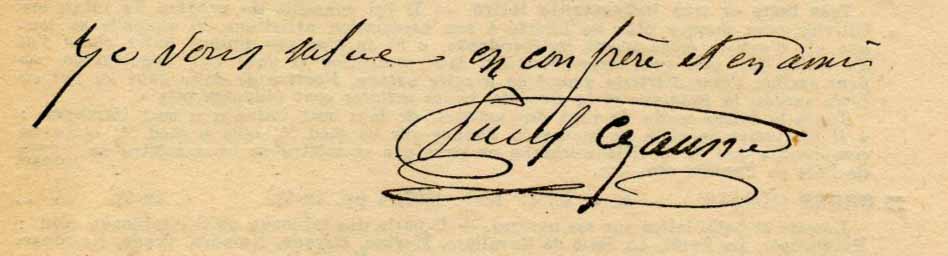 Je vous salue en confrère et en ami